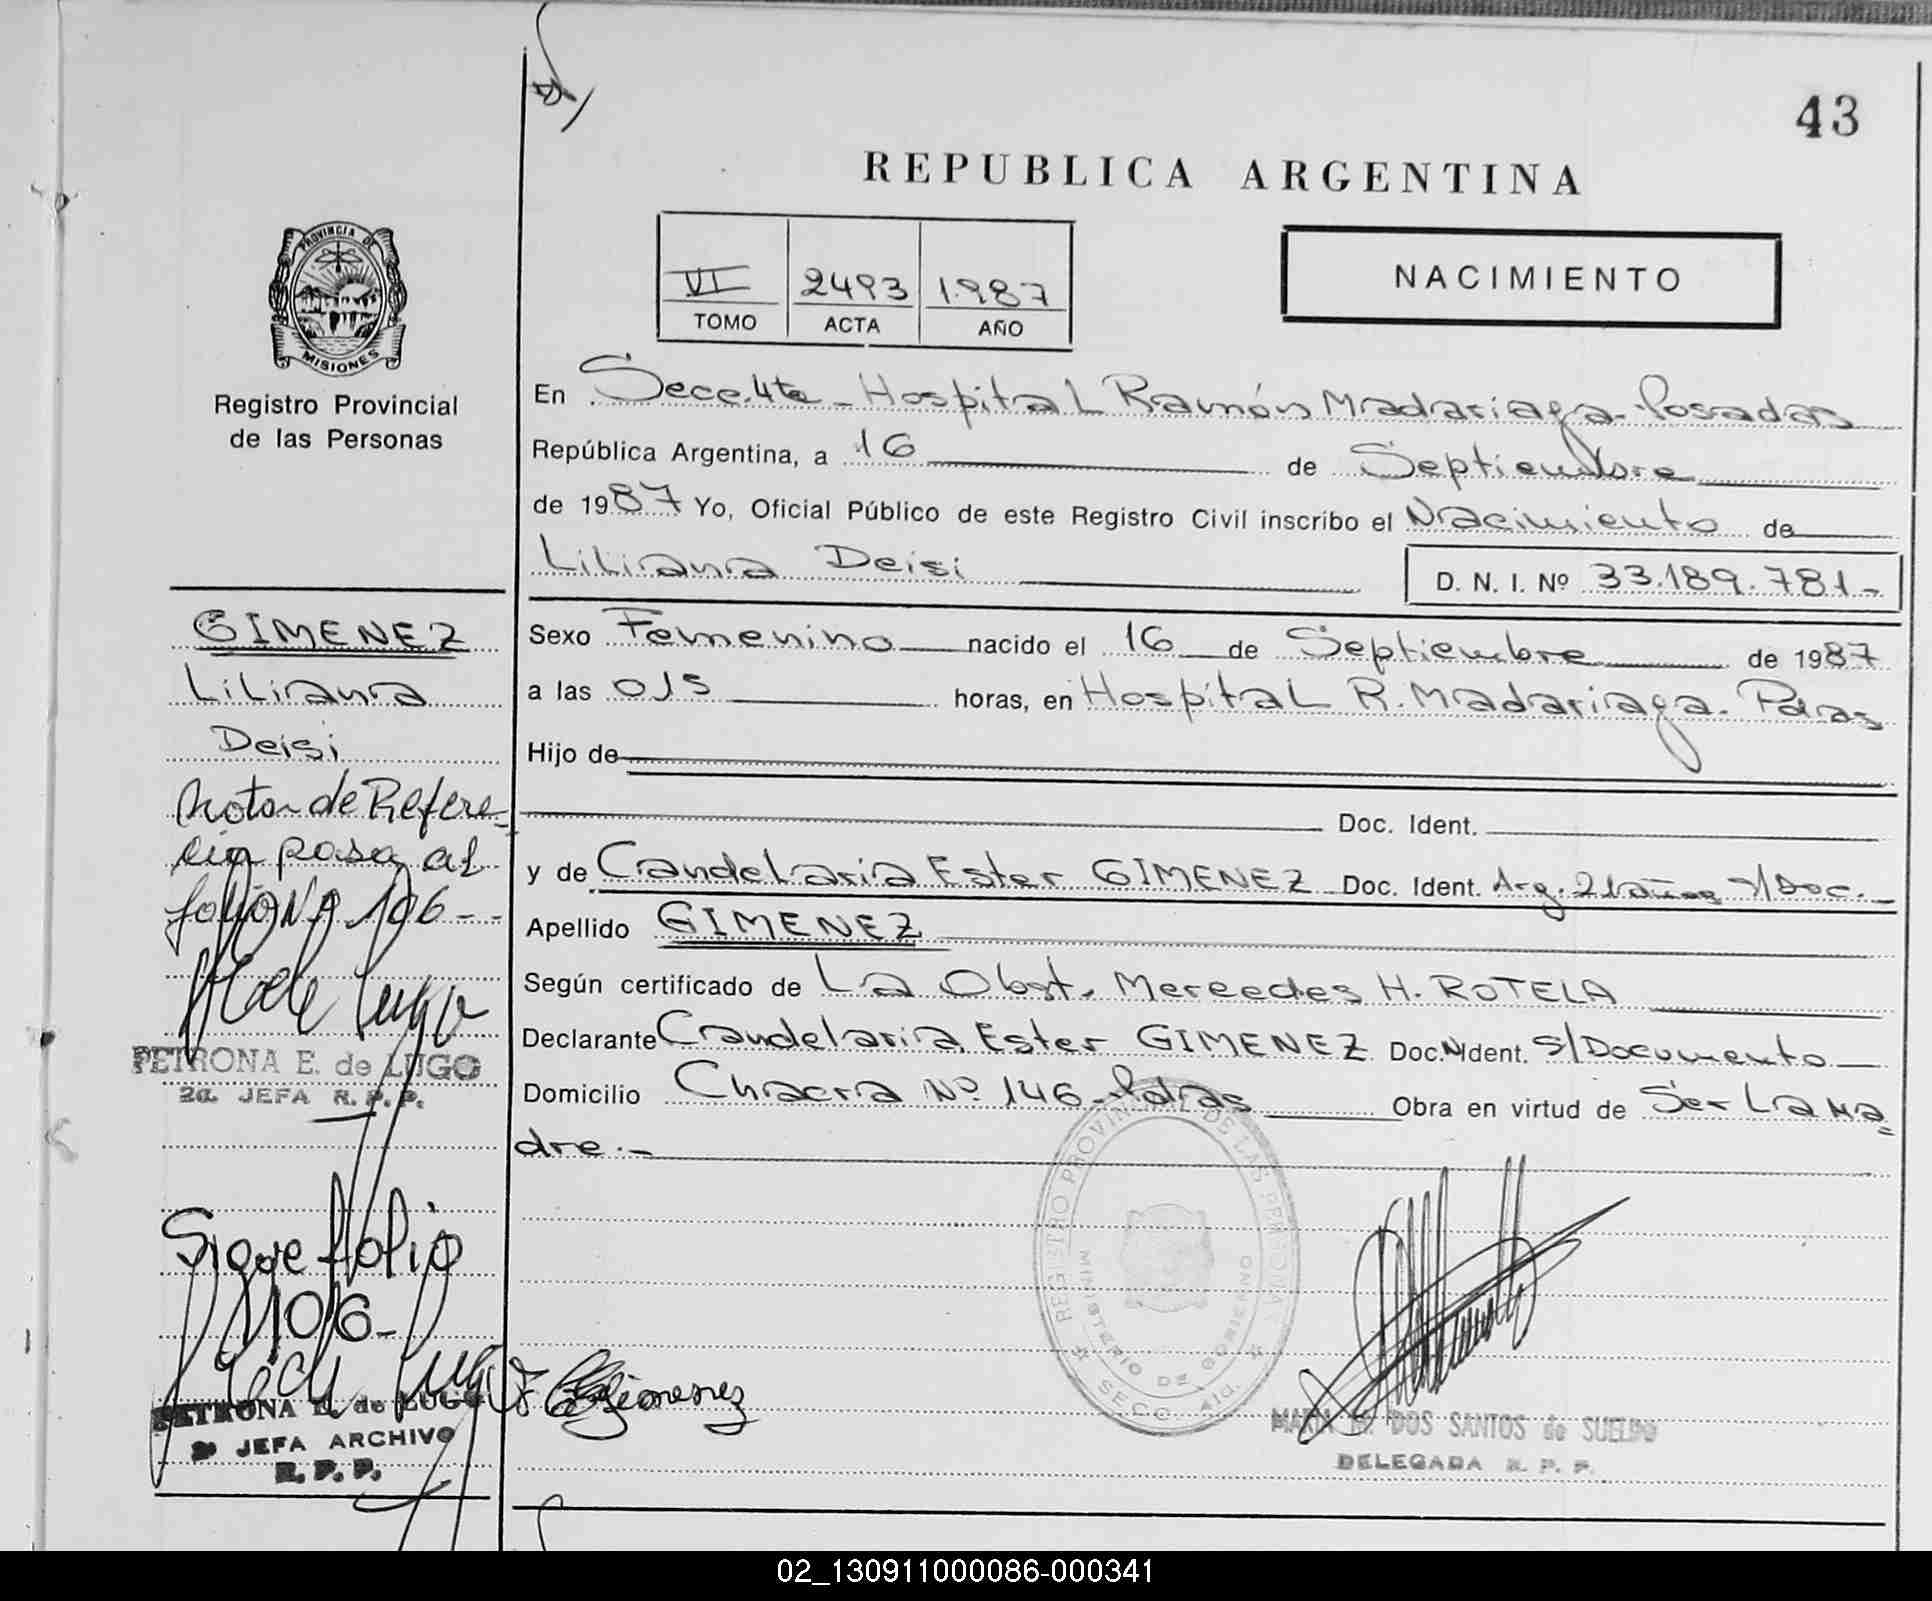 43
REPUBLICA ARGENTINA
PROVINCIA DE
MISIONES
Registro Provincial
de las Personas
VI 2493 1987
TOMO ACTA AÑO
NACIMIENTO
En Secc. 4ta - Hospital Ramón Madariaga - Posadas
República Argentina, a 16 de Septiembre
de 1987 Yo, Oficial Público de este Registro Civil inscribo el Nacimiento de
Liliana Deisi D. N. I. Nº 33.189.781.-
Sexo Femenino nacido el 16 de Septiembre de 1987
a las 015 horas, en Hospital R. Madariaga. Pdas
Hijo de
Doc. Ident.
y de Candelaria Ester GIMENEZ Doc. Ident. Arg. 21 años s/Doc.-
Apellido GIMENEZ
Según certificado de La Obst. Mercedes H. ROTELA
Declarante Candelaria Ester GIMENEZ Doc. Ident. S/Documento
Domicilio Chacra Nº 146 - Pdas Obra en virtud de Ser La Ma=
dre.-
GIMENEZ
Liliana
Deisi
Nota de Refere-
cia pasa al
folio Nº 106--
PETRONA E. de LUGO
2a. JEFA R. P. P.
Sigue folio
106-
PETRONA E. de LUGO
2a JEFA ARCHIVO
R. P. P.
Gimenez
REGISTRO PROVINCIAL DE LAS PERSONAS
MINISTERIO DE GOBIERNO
SECC. 4ta.
MARIA DOS SANTOS de SUELDO
DELEGADA R. P. P.
02_130911000086-000341